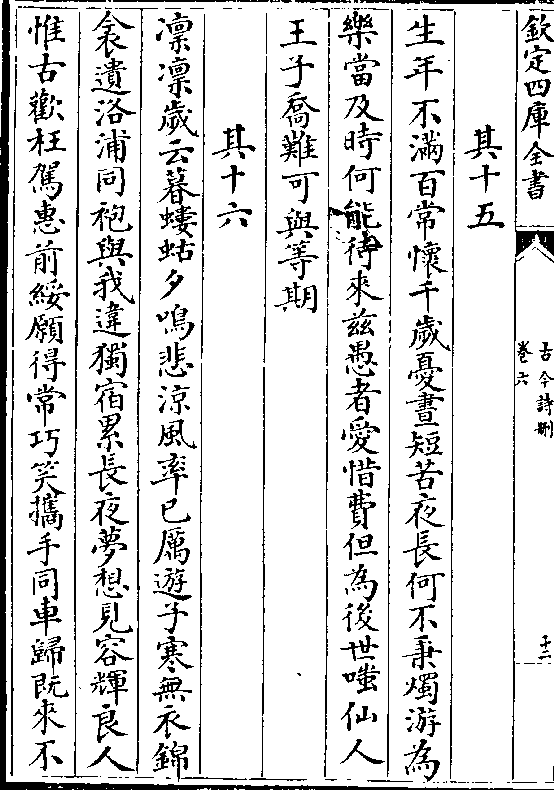 欽定四庫全書
古今詩刪
卷六
十二
其十五
生年不滿百常懷千歲憂晝短苦夜長何不秉燭游為
樂當及時何能待來茲愚者愛惜費但為後世嗤仙人
王子喬難可與等期
其十六
凜凜歲云暮螻蛄夕鳴悲涼風率已厲遊子寒無衣錦
衾遺洛浦同袍與我違獨宿累長夜夢想見容輝良人
惟古歡枉駕惠前綏願得常巧笑攜手同車歸既來不